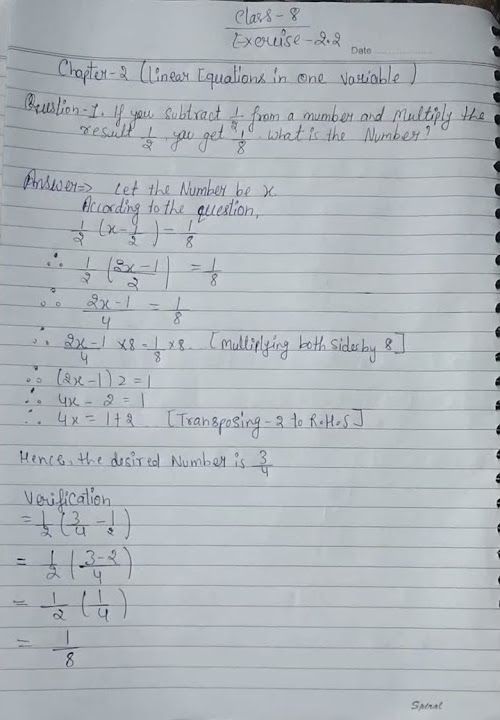 Class-8
Exercise-2.2
Date
Chapter-2 (Linear Equations in one variable)
Question-1. If you subtract 1/2 from a number and Multiply the
result 1/2, you get 1/8. What is the Number?
Answer=> Let the Number be x.
According to the question,
1/2 (x-1/2) = 1/8
∴ 1/2 (2x-1/2) = 1/8
∴ 2x-1/4 = 1/8
∴ 2x-1/4 ×8 = 1/8 ×8. [Multiplying both sides by 8]
∴ (2x-1) 2 = 1
∴ 4x - 2 = 1
∴ 4x = 1+2 [Transposing -2 to R.H.S]
Hence, the desired Number is 3/4
Verification
= 1/2 (3/4 - 1/2)
= 1/2 (3-2/4)
= 1/2 (1/4)
= 1/8
Spiral